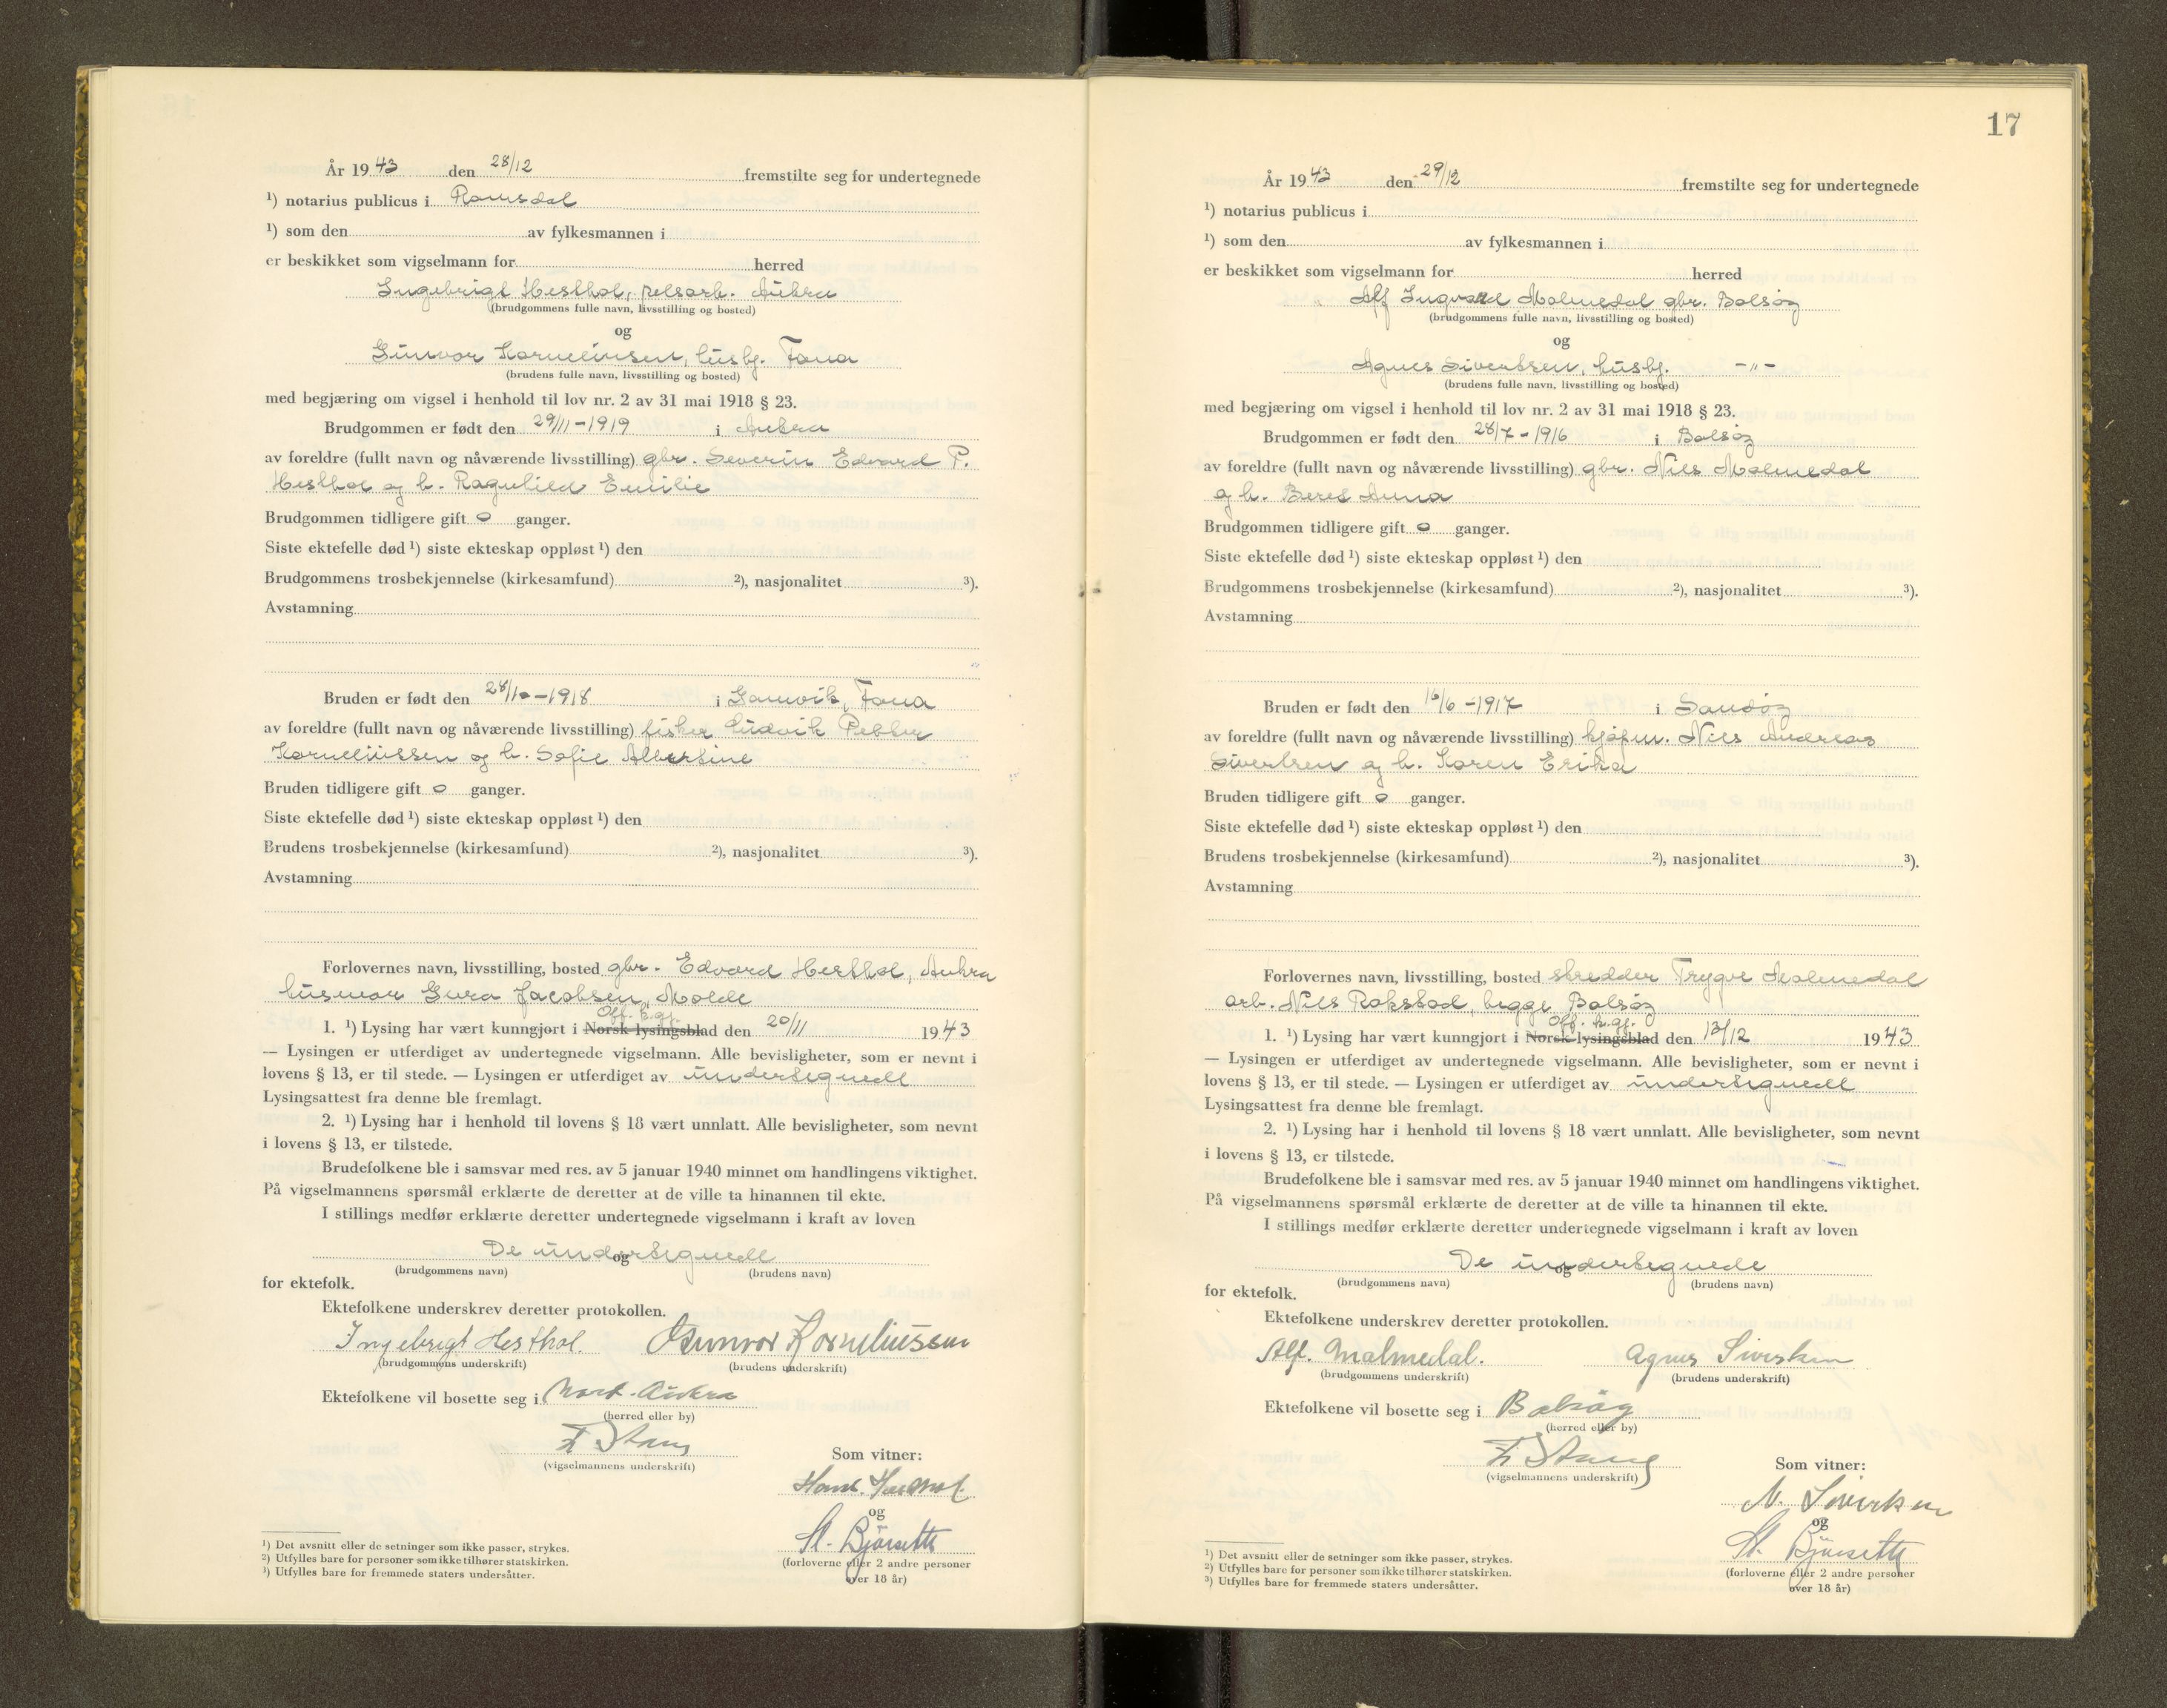 År 1943 den 28/12 fremstilte seg for undertegnede
¹) notarius publicus i Romsdal
¹) som den av fylkesmannen i
er beskikket som vigselmann for herred
Ingebrigt Hesthol, pelsarb. Aukra
(brudgommens fulle navn, livsstilling og bosted)
og
Gunvor Korneliusen, husbg. Tana
(brudens fulle navn, livsstilling og bosted)
med begjæring om vigsel i henhold til lov nr. 2 av 31 mai 1918 § 23.
Brudgommen er født den 29/11-1919 i Aukra
av foreldre (fullt navn og nåværende livsstilling) gbr. Severin Edvard P.
Hesthol og h. Ragnhild Emilie
Brudgommen tidligere gift 0 ganger.
Siste ektefelle død ¹) siste ekteskap oppløst ¹) den
Brudgommens trosbekjennelse (kirkesamfund) ²), nasjonalitet ³).
Avstamning
Bruden er født den 28/10-1918 i Gamvik, Tana
av foreldre (fullt navn og nåværende livsstilling) fisker Ludvik Petter
Korneliussen og h. Sofie Albertine
Bruden tidligere gift 0 ganger.
Siste ektefelle død ¹) siste ekteskap oppløst ¹) den
Brudens trosbekjennelse (kirkesamfund) ²), nasjonalitet ³).
Avstamning
Forlovernes navn, livsstilling, bosted gbr. Edvard Hesthol, Aukra
husmor Gura Jacobsen, Molde
Off. k.gj.
1. ¹) Lysing har vært kunngjort i Norsk lysingsblad den 20/11 1943
— Lysingen er utferdiget av undertegnede vigselmann. Alle bevisligheter, som er nevnt i
lovens § 13, er til stede. — Lysingen er utferdiget av undertegnede
Lysingsattest fra denne ble fremlagt.
2. ¹) Lysing har i henhold til lovens § 18 vært unnlatt. Alle bevisligheter, som nevnt
i lovens § 13, er tilstede.
Brudefolkene ble i samsvar med res. av 5 januar 1940 minnet om handlingens viktighet.
På vigselmannens spørsmål erklærte de deretter at de ville ta hinannen til ekte.
I stillings medfør erklærte deretter undertegnede vigselmann i kraft av loven
De undertegnede
og
(brudgommens navn) (brudens navn)
for ektefolk.
Ektefolkene underskrev deretter protokollen.
Ingebrigt Hesthol. Gunvor Korneliussen
(brudgommens underskrift) (brudens underskrift)
Ektefolkene vil bosette seg i Nord-Aukra
(herred eller by)
F Stang
(vigselmannens underskrift)
Som vitner:
Hans Hesthol
og
St. Bjørseth
(forloverne eller 2 andre personer
over 18 år)
¹) Det avsnitt eller de setninger som ikke passer, strykes.
²) Utfylles bare for personer som ikke tilhører statskirken.
³) Utfylles bare for fremmede staters undersåtter.
17
År 1943 den 29/12 fremstilte seg for undertegnede
¹) notarius publicus i
¹) som den av fylkesmannen i
er beskikket som vigselmann for herred
Alf Ingvard Malmedal gbr. Bolsøy
(brudgommens fulle navn, livsstilling og bosted)
og
Agnes Sivertsen, husbg. -"-
(brudens fulle navn, livsstilling og bosted)
med begjæring om vigsel i henhold til lov nr. 2 av 31 mai 1918 § 23.
Brudgommen er født den 28/7-1916 i Bolsøy
av foreldre (fullt navn og nåværende livsstilling) gbr. Nils Malmedal
og h. Beret Anna
Brudgommen tidligere gift 0 ganger.
Siste ektefelle død ¹) siste ekteskap oppløst ¹) den
Brudgommens trosbekjennelse (kirkesamfund) ²), nasjonalitet ³).
Avstamning
Bruden er født den 16/6-1917 i Sandøy
av foreldre (fullt navn og nåværende livsstilling) kjøpm. Nils Andreas
Sivertsen og h. Karen Erika
Bruden tidligere gift 0 ganger.
Siste ektefelle død ¹) siste ekteskap oppløst ¹) den
Brudens trosbekjennelse (kirkesamfund) ²), nasjonalitet ³).
Avstamning
Forlovernes navn, livsstilling, bosted skredder Trygve Malmedal
arb. Nils Rakstad, begge Bolsøy
Off. k.gj.
1. ¹) Lysing har vært kunngjort i Norsk lysingsblad den 13/12 1943
— Lysingen er utferdiget av undertegnede vigselmann. Alle bevisligheter, som er nevnt i
lovens § 13, er til stede. — Lysingen er utferdiget av undertegnede
Lysingsattest fra denne ble fremlagt.
2. ¹) Lysing har i henhold til lovens § 18 vært unnlatt. Alle bevisligheter, som nevnt
i lovens § 13, er tilstede.
Brudefolkene ble i samsvar med res. av 5 januar 1940 minnet om handlingens viktighet.
På vigselmannens spørsmål erklærte de deretter at de ville ta hinannen til ekte.
I stillings medfør erklærte deretter undertegnede vigselmann i kraft av loven
De undertegnede
og
(brudgommens navn) (brudens navn)
for ektefolk.
Ektefolkene underskrev deretter protokollen.
Alf. Malmedal. Agnes Sivertsen
(brudgommens underskrift) (brudens underskrift)
Ektefolkene vil bosette seg i Bolsøy
(herred eller by)
F Stang
(vigselmannens underskrift)
Som vitner:
N. Sivertsen
og
St. Bjørseth
(forloverne eller 2 andre personer
over 18 år)
¹) Det avsnitt eller de setninger som ikke passer, strykes.
²) Utfylles bare for personer som ikke tilhører statskirken.
³) Utfylles bare for fremmede staters undersåtter.